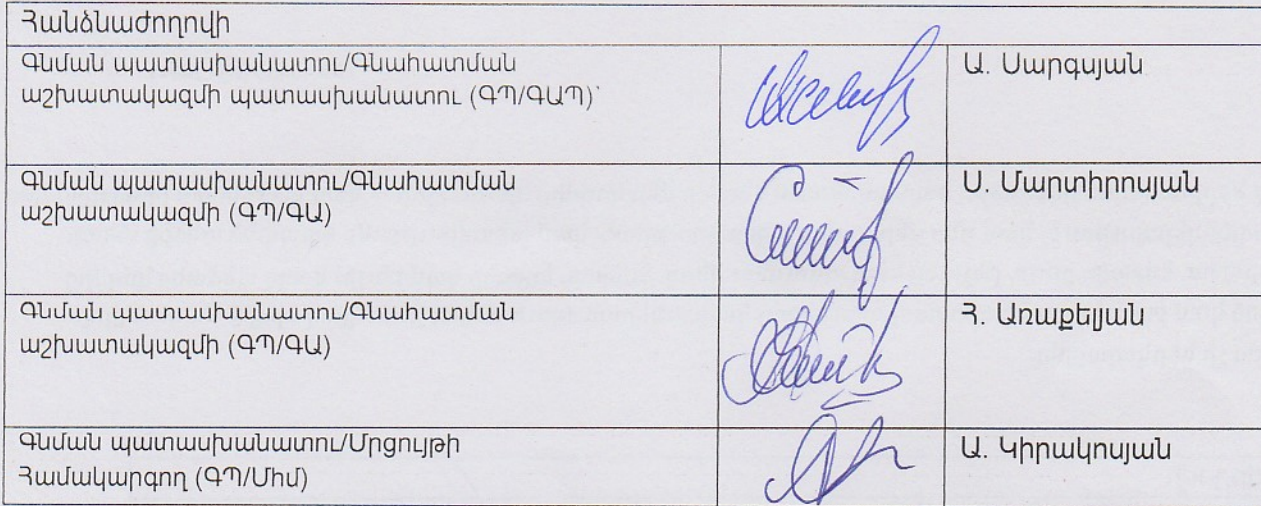 Հանձնաժողովի
Գնման պատասխանատու/Գնահատման
աշխատակազմի պատասխանատու (ԳՊ/ԳԱՊ)՝
Ա. Սարգսյան
Գնման պատասխանատու/Գնահատման
աշխատակազմի (ԳՊ/ԳԱ)
Ս. Մարտիրոսյան
Գնման պատասխանատու/Գնահատման
աշխատակազմի (ԳՊ/ԳԱ)
Հ. Առաքելյան
Գնման պատասխանատու/Մրցույթի
Համակարգող (ԳՊ/Մհմ)
Ա. Կիրակոսյան